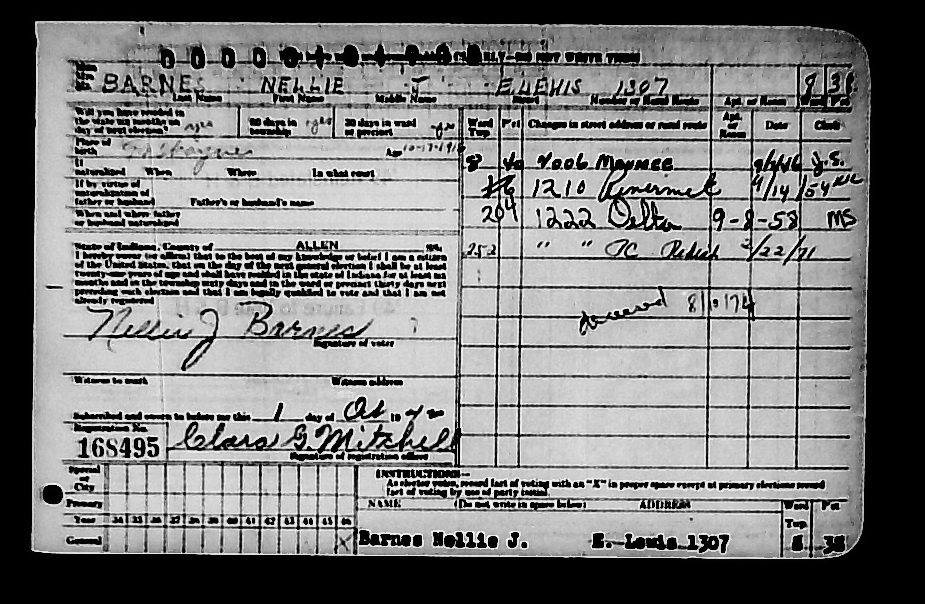 BARNES NELLIE J E. LEWIS 1307 8 38
Last Name First Name Middle Name Street Number or Rural Route Apt. or Room Ward Pct.
Will you have resided in the state six months on day of next election? yes 60 days in township yes 30 days in ward or precinct yes
Place of birth Age
If naturalized When Where In what court
If by virtue of naturalization of father or husband Father's or husband's name
When and where father or husband naturalized
State of Indiana, County of ALLEN ss.
I hereby swear (or affirm) that to the best of my knowledge or belief I am a citizen
of the United States, that on the day of the next general election I shall be at least
twenty-one years of age and shall have resided in the state of Indiana for at least six
months and in the township sixty days and in the ward or precinct thirty days next
preceding such election and that I am legally qualified to vote and that I am not
already registered
Nellie J Barnes
Signature of voter
Witness to mark Witness address
Subscribed and sworn to before me this 1 day of Oct 19
Registration No. 168495
Clara G Mitchell
Signature of registration officer
Ward Twp. Pct. Changes in street address or rural route Apt. or Room Date Clerk
8 40 2006 MAUMEE J.S.
1210 /14/54
204 1222 Delta 9-8-58 MS
252 " " PC Redist 2/22/71
deceased 8/ /74
Special or City
Primary
Year 34 35 36 37 38 39 40 41 42 43 44 45 46
General X
INSTRUCTIONS—
As elector votes, record fact of voting with an "X" in proper space except at primary elections record
fact of voting by use of party initial.
NAME (Do not write in space below) ADDRESS Ward Twp. Pct
Barnes Nellie J. E. Lewis 1307 8 38